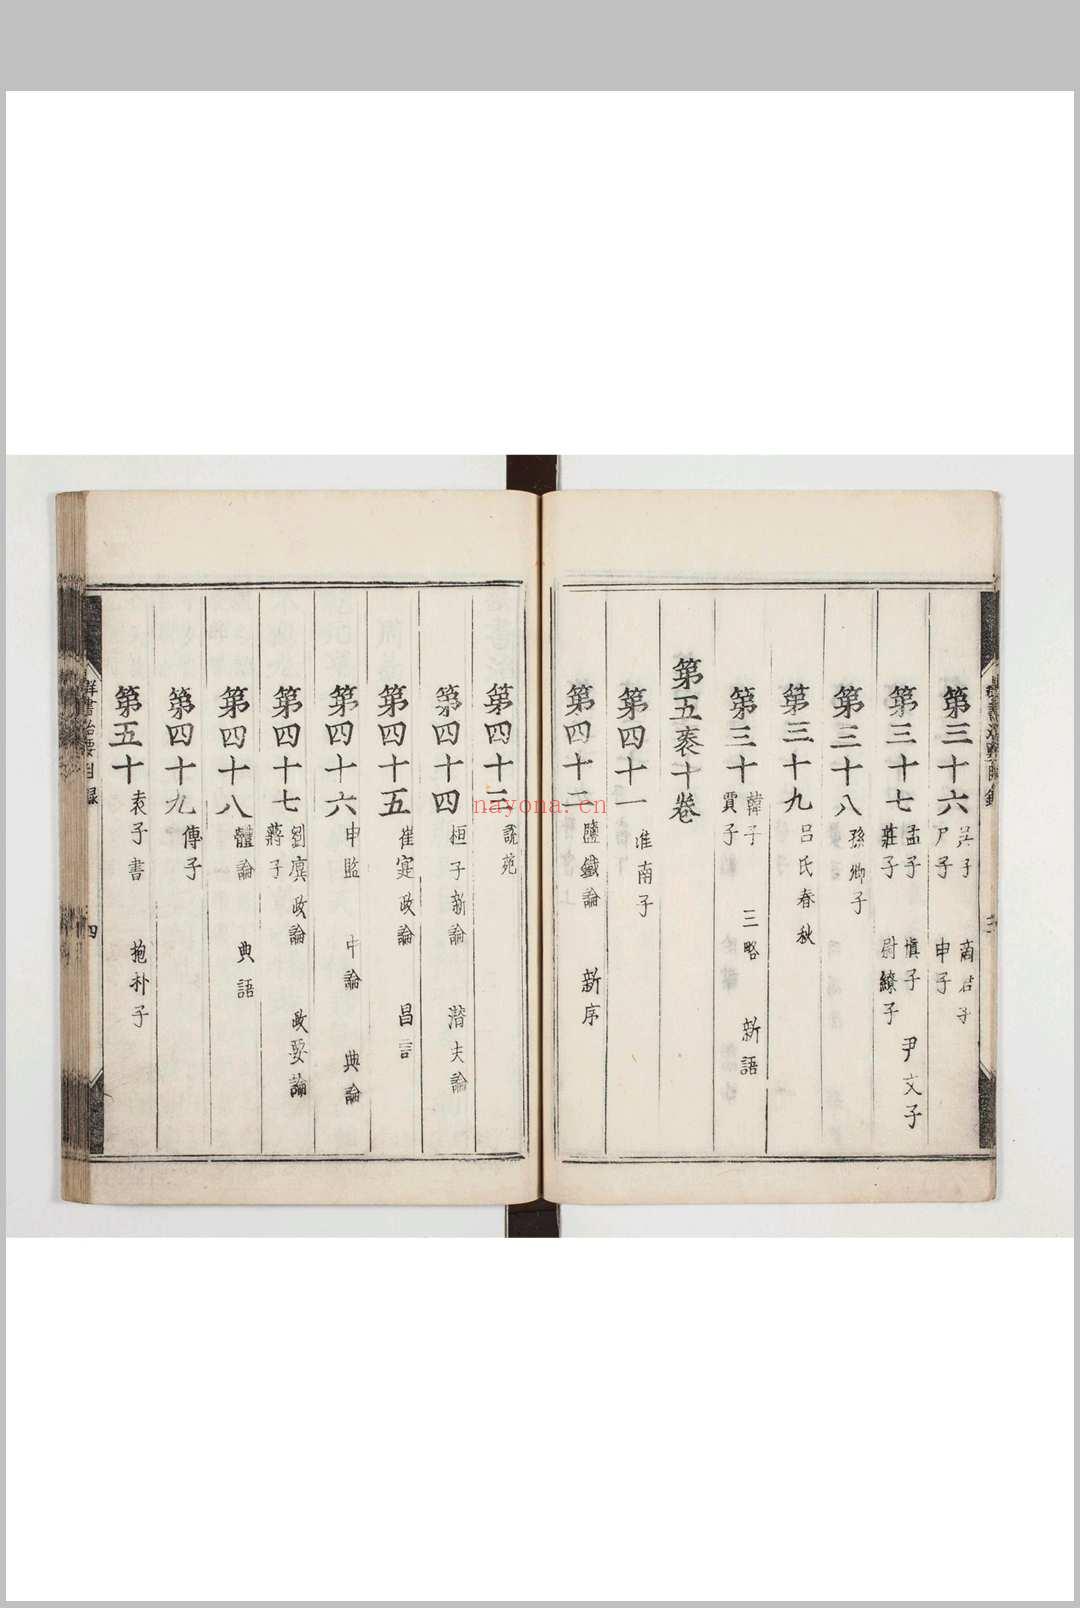 第三十六 吳子 商君子
尸子 申子
第三十七 孟子 愼子 尹文子
莊子 尉繚子
第三十八 孫卿子
第三十九 呂氏春秋
第三十 韓子 三略 新語
賈子
第五袠十卷
第四十一 淮南子
第四十二 鹽鐵論 新序
第四十三 說苑
第四十四 桓子新論 潛夫論
第四十五 崔寔政論 昌言
第四十六 申監 中論 典論
第四十七 劉廙政論 政要論
蔣子
第四十八 體論 典語
第四十九 傅子
第五十 袁子書 抱朴子
群書治要目錄 四
nayona.cn